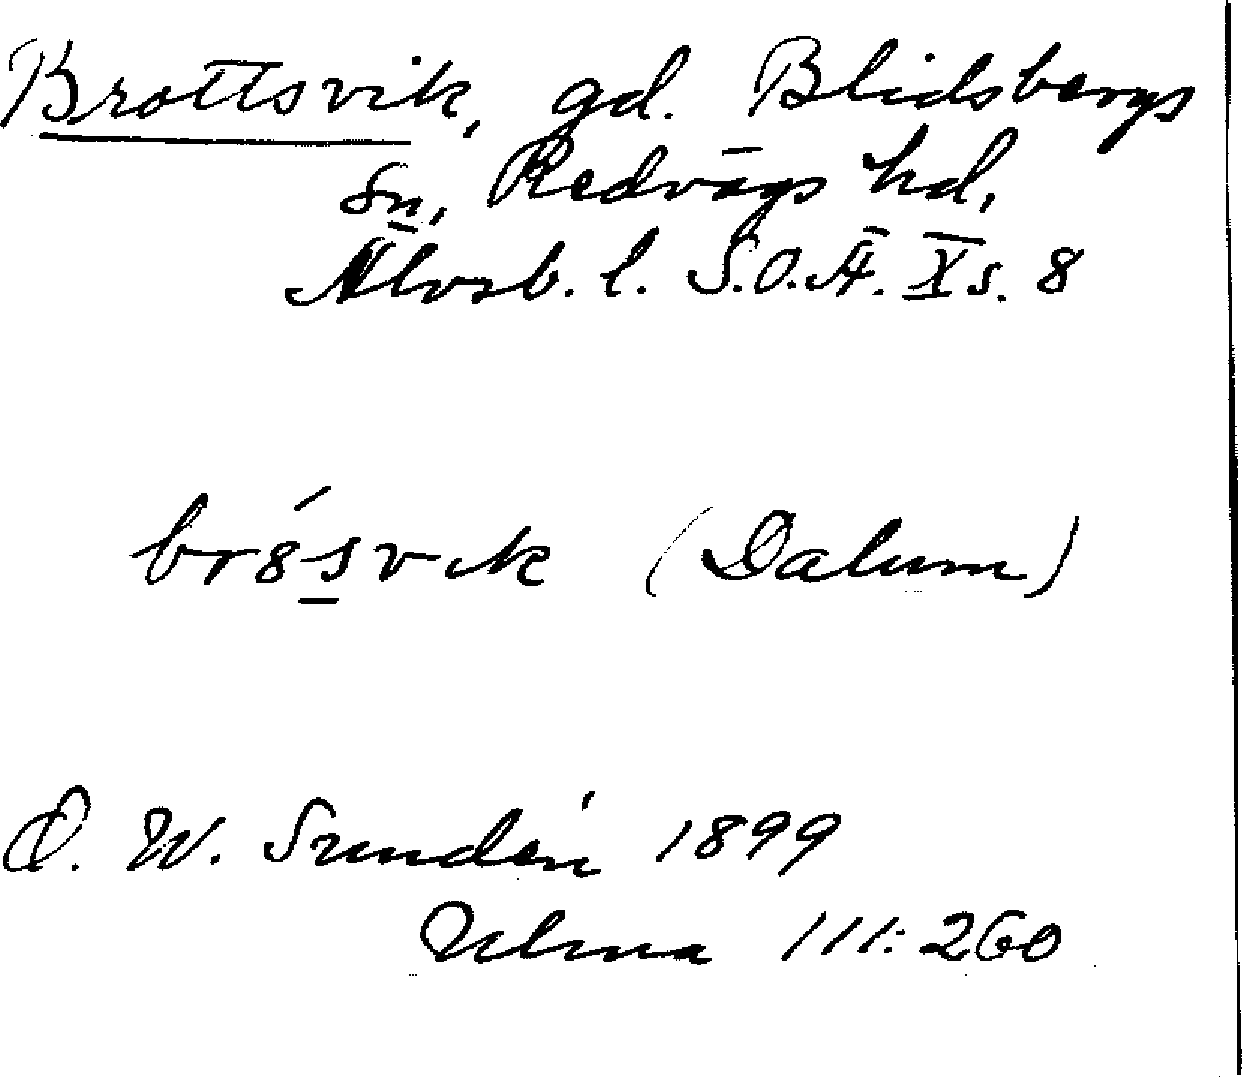 Brottsvik, gd. Blidsbergs
sn, Redvägs hd,
Älvsb. l. S.O.Ä. X s. 8
br8́svik (Dalum)
D. W. Sundén 1899
Ulma 111:260